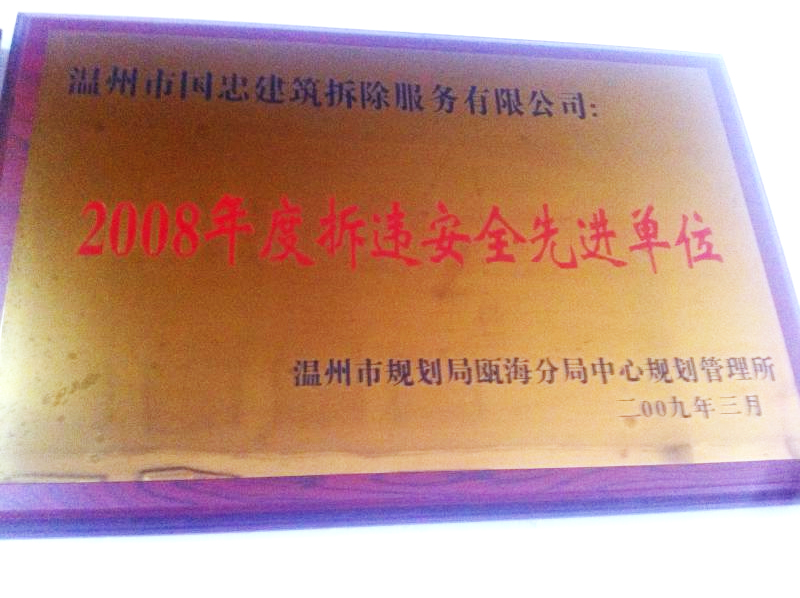 温州市国忠建筑拆除服务有限公司:
2008年度拆违安全先进单位
温州市规划局瓯海分局中心规划管理所
二00九年三月